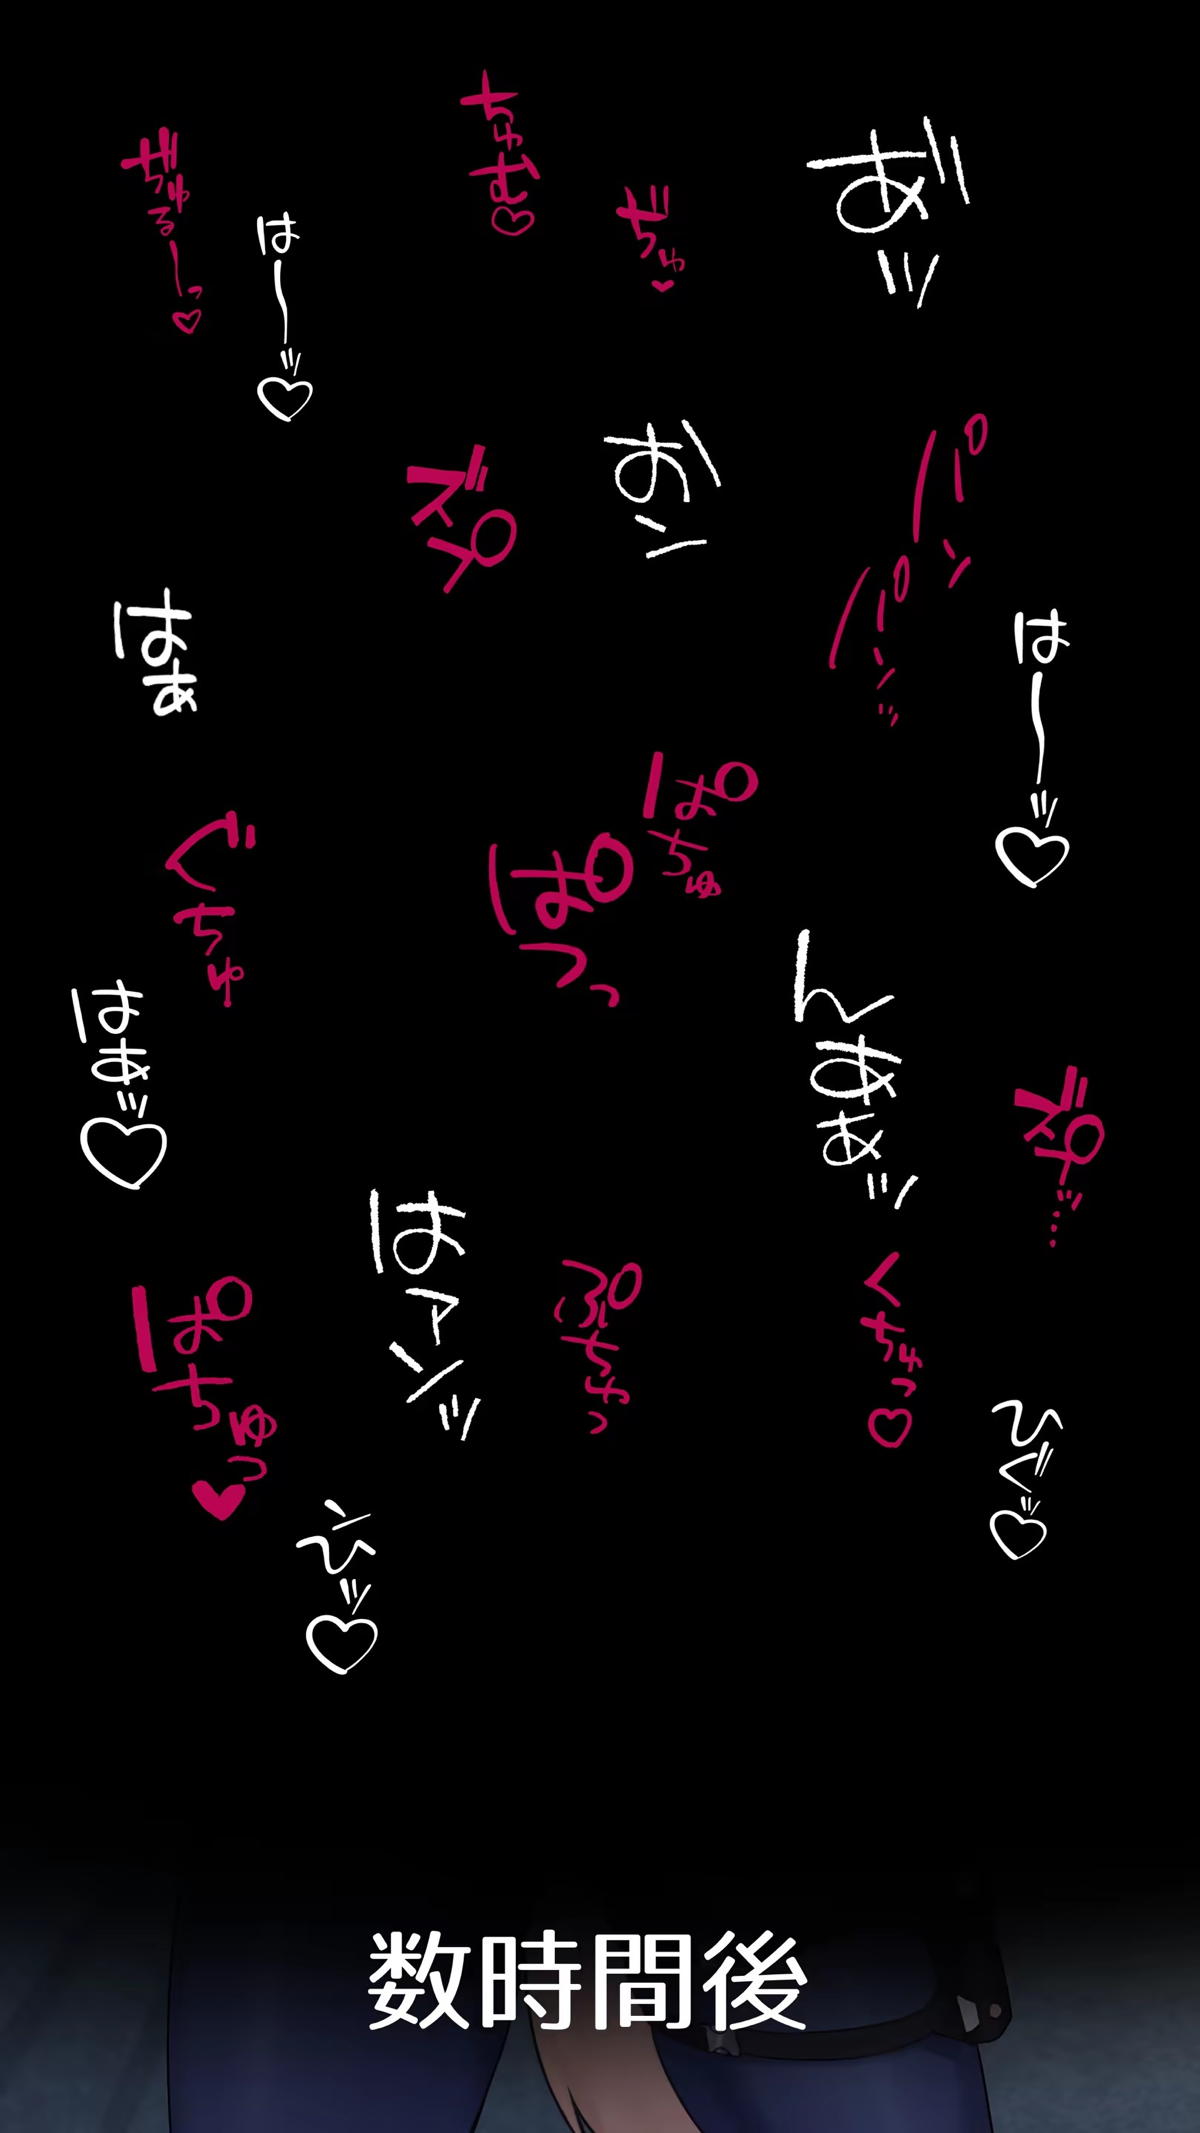 あ゛ッ
ちゅむ♡
ぢゅ♥
ぢゅるーっ♡
は〜ッ♡
パンパンッ
おン
ズプ
は〜ッ♡
はぁ
ぱちゅ
ぱつっ
ぐちゅ
んあぁッ
はぁッ♡
ズプッ…
はァンッ
くちゅっ♡
ぷちゅっ
ぱちゅっ♥
ひぐッ♡
ンひッ♡
数時間後